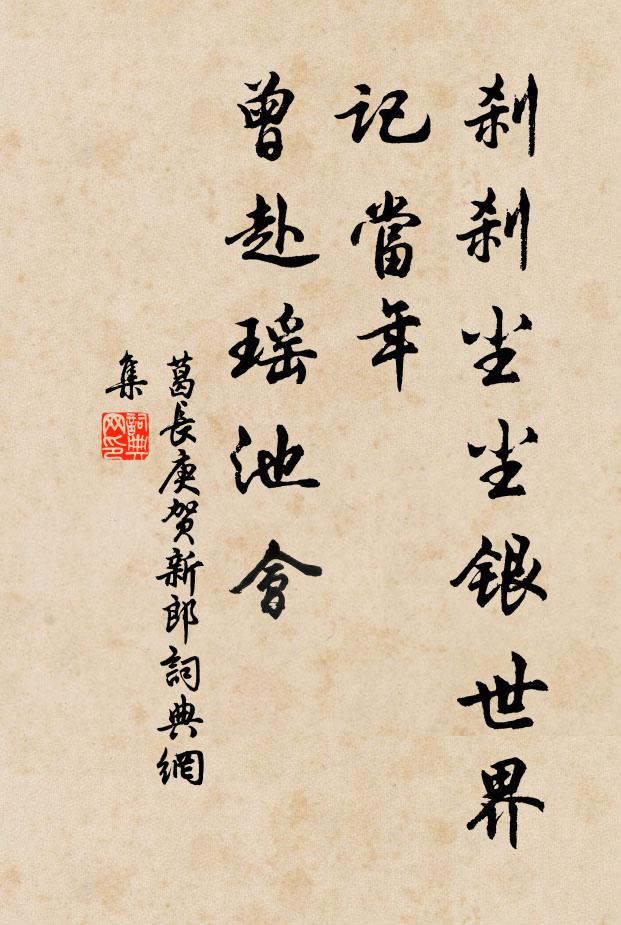 刹刹尘尘銀世界
記當年
曾赴瑶池會
葛長庚贺新郎詞典網
集
詞典
网印